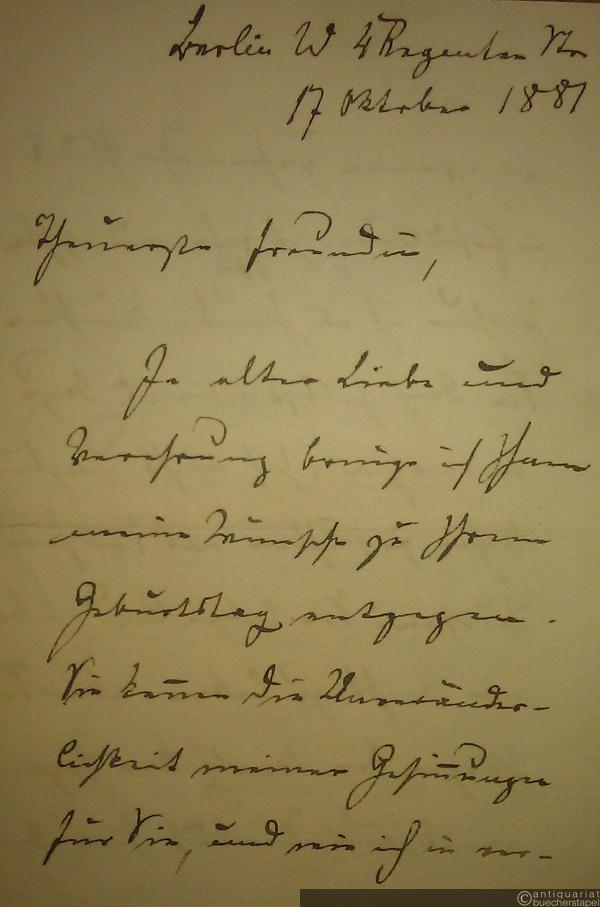 Berlin W 4 Regenten Str
17 Oktober 1881
Theuerste Freundin,
In alter Liebe und
Verehrung bringe ich Ihnen
meine Wünsche zu Ihrem
Geburtstag entgegen.
Sie kennen die Unveränder-
lichkeit meiner Gesinnungen
für Sie, und wie ich in ver-
©antiquariat
buecherstapel